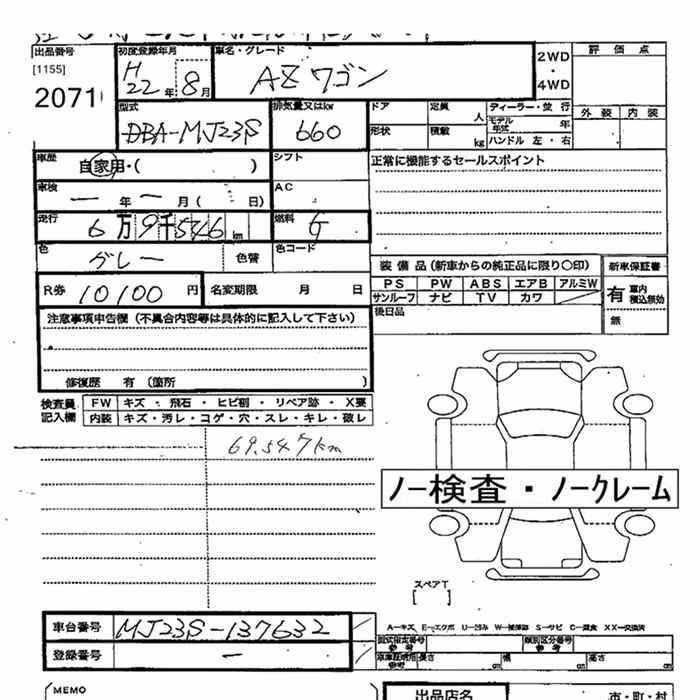 出品番号 初度登録年月 車名・グレード 2WD 評価点
[1155] H22年8月 AZワゴン ・
2071 4WD 外装 内装
型式 排気量又はkw ドア 定員 人 ディーラー・並行
DBA-MJ23S 660 モデル年式 年
形状 積載 kg ハンドル 左・右
車歴 自家用・( ) シフト 正常に機能するセールスポイント
車検 ー年ー月( 日) AC
走行 6万9千546km 燃料 G
色 グレー 色替 色コード
装備品(新車からの純正品に限り○印) 新車保証書
R券 10100円 名変期限 月 日 PS PW ABS エアB アルミW 有 車内積込無効
サンルーフ ナビ TV カワ
注意事項申告欄(不具合内容等は具体的に記入して下さい) 後日品 無
修復歴 有(箇所 )
検査員記入欄 FW キズ・飛石・ヒビ割・リペア跡・X要
内装 キズ・汚レ・コゲ・穴・スレ・キレ・破レ
69,547km
ノー検査・ノークレーム
スペアT
[ ]
車台番号 MJ23S-137632 A-キズ E-エクボ U-凹み W-補修跡 S-サビ C-腐食 XX-交換済
型式指定番号 参考 類別区分番号 参考
登録番号 ー 車庫証明用 参考 長さ cm 幅 cm 高さ cm
MEMO 出品店名 市・町・村